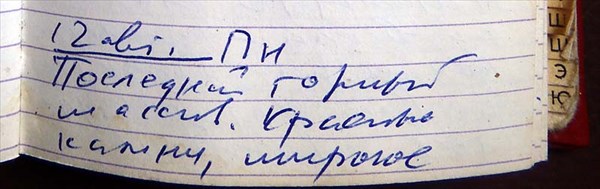 12 авг. ПН
Последний горный
массив. Красивые
камни, широкое
Ш
Щ
Э
Ю